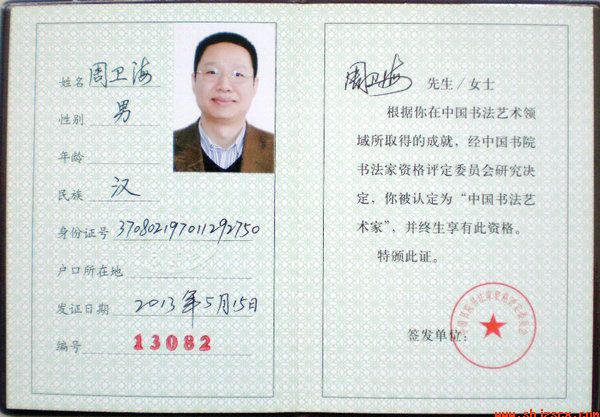 姓名 周卫海
性别 男
年龄
民族 汉
身份证号 370802197011292750
户口所在地
发证日期 2013年5月15日
编号 13082
周卫海 先生/女士
根据你在中国书法艺术领
域所取得的成就，经中国书院
书法家资格评定委员会研究决
定，你被认定为“中国书法艺
术家”，并终生享有此资格。
特颁此证。
签发单位：